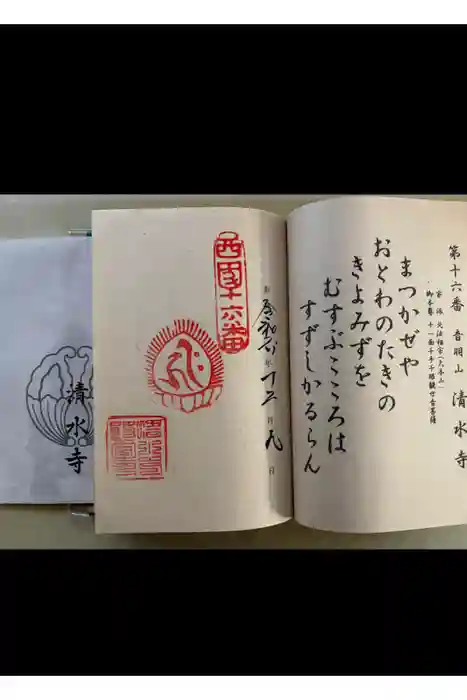 第十六番 音羽山 清水寺
宗派 北法相宗(大本山)
御本尊 十一面千手千眼観世音菩薩
まつかぜや
おとわのたきの
きよみずを
むすぶこころは
すずしかるらん
西国十六番
令和六年十二月九日
清水寺